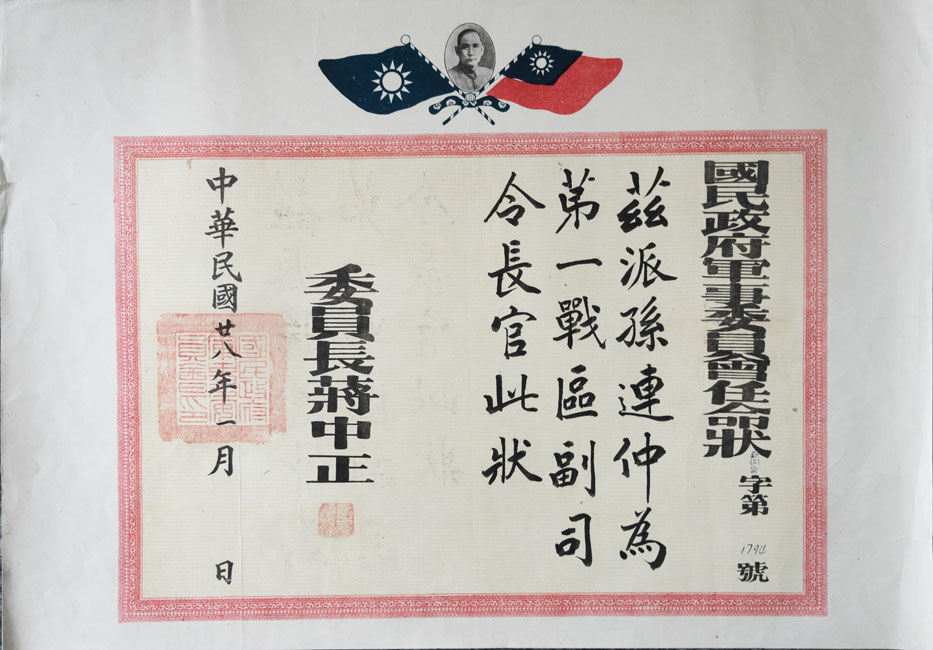 國民政府軍事委員會任命狀
字第1794號
茲派孫連仲為
第一戰區副司
令長官此狀
委員長蔣中正
中華民國廿八年一月 日